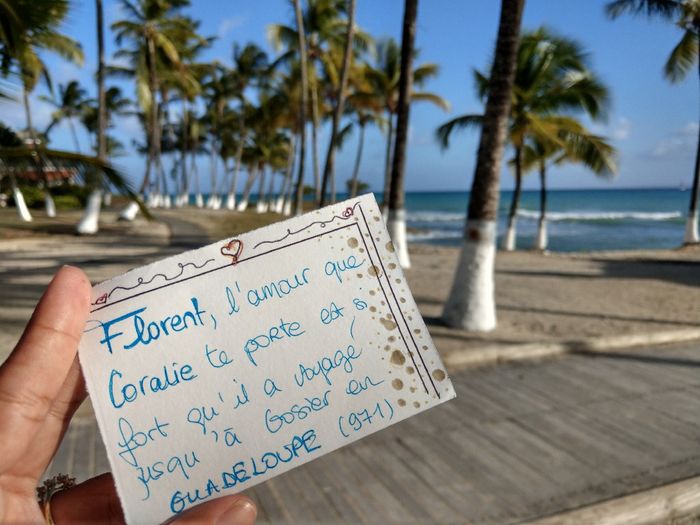 Florent, l'amour que
Coralie te porte est si
fort qu'il a voyagé
jusqu'à Gosier en
GUADELOUPE (971)